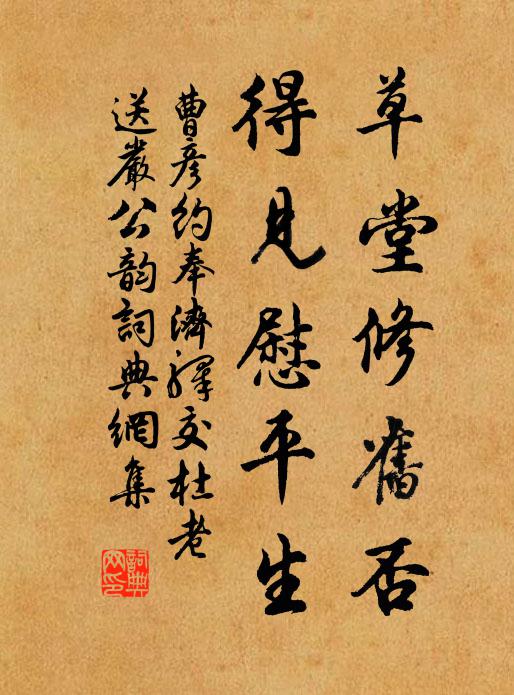 草堂修舊否
得見慰平生
曹彥約奉濟驛交杜老
送嚴公韵詞典網集
詞典網印